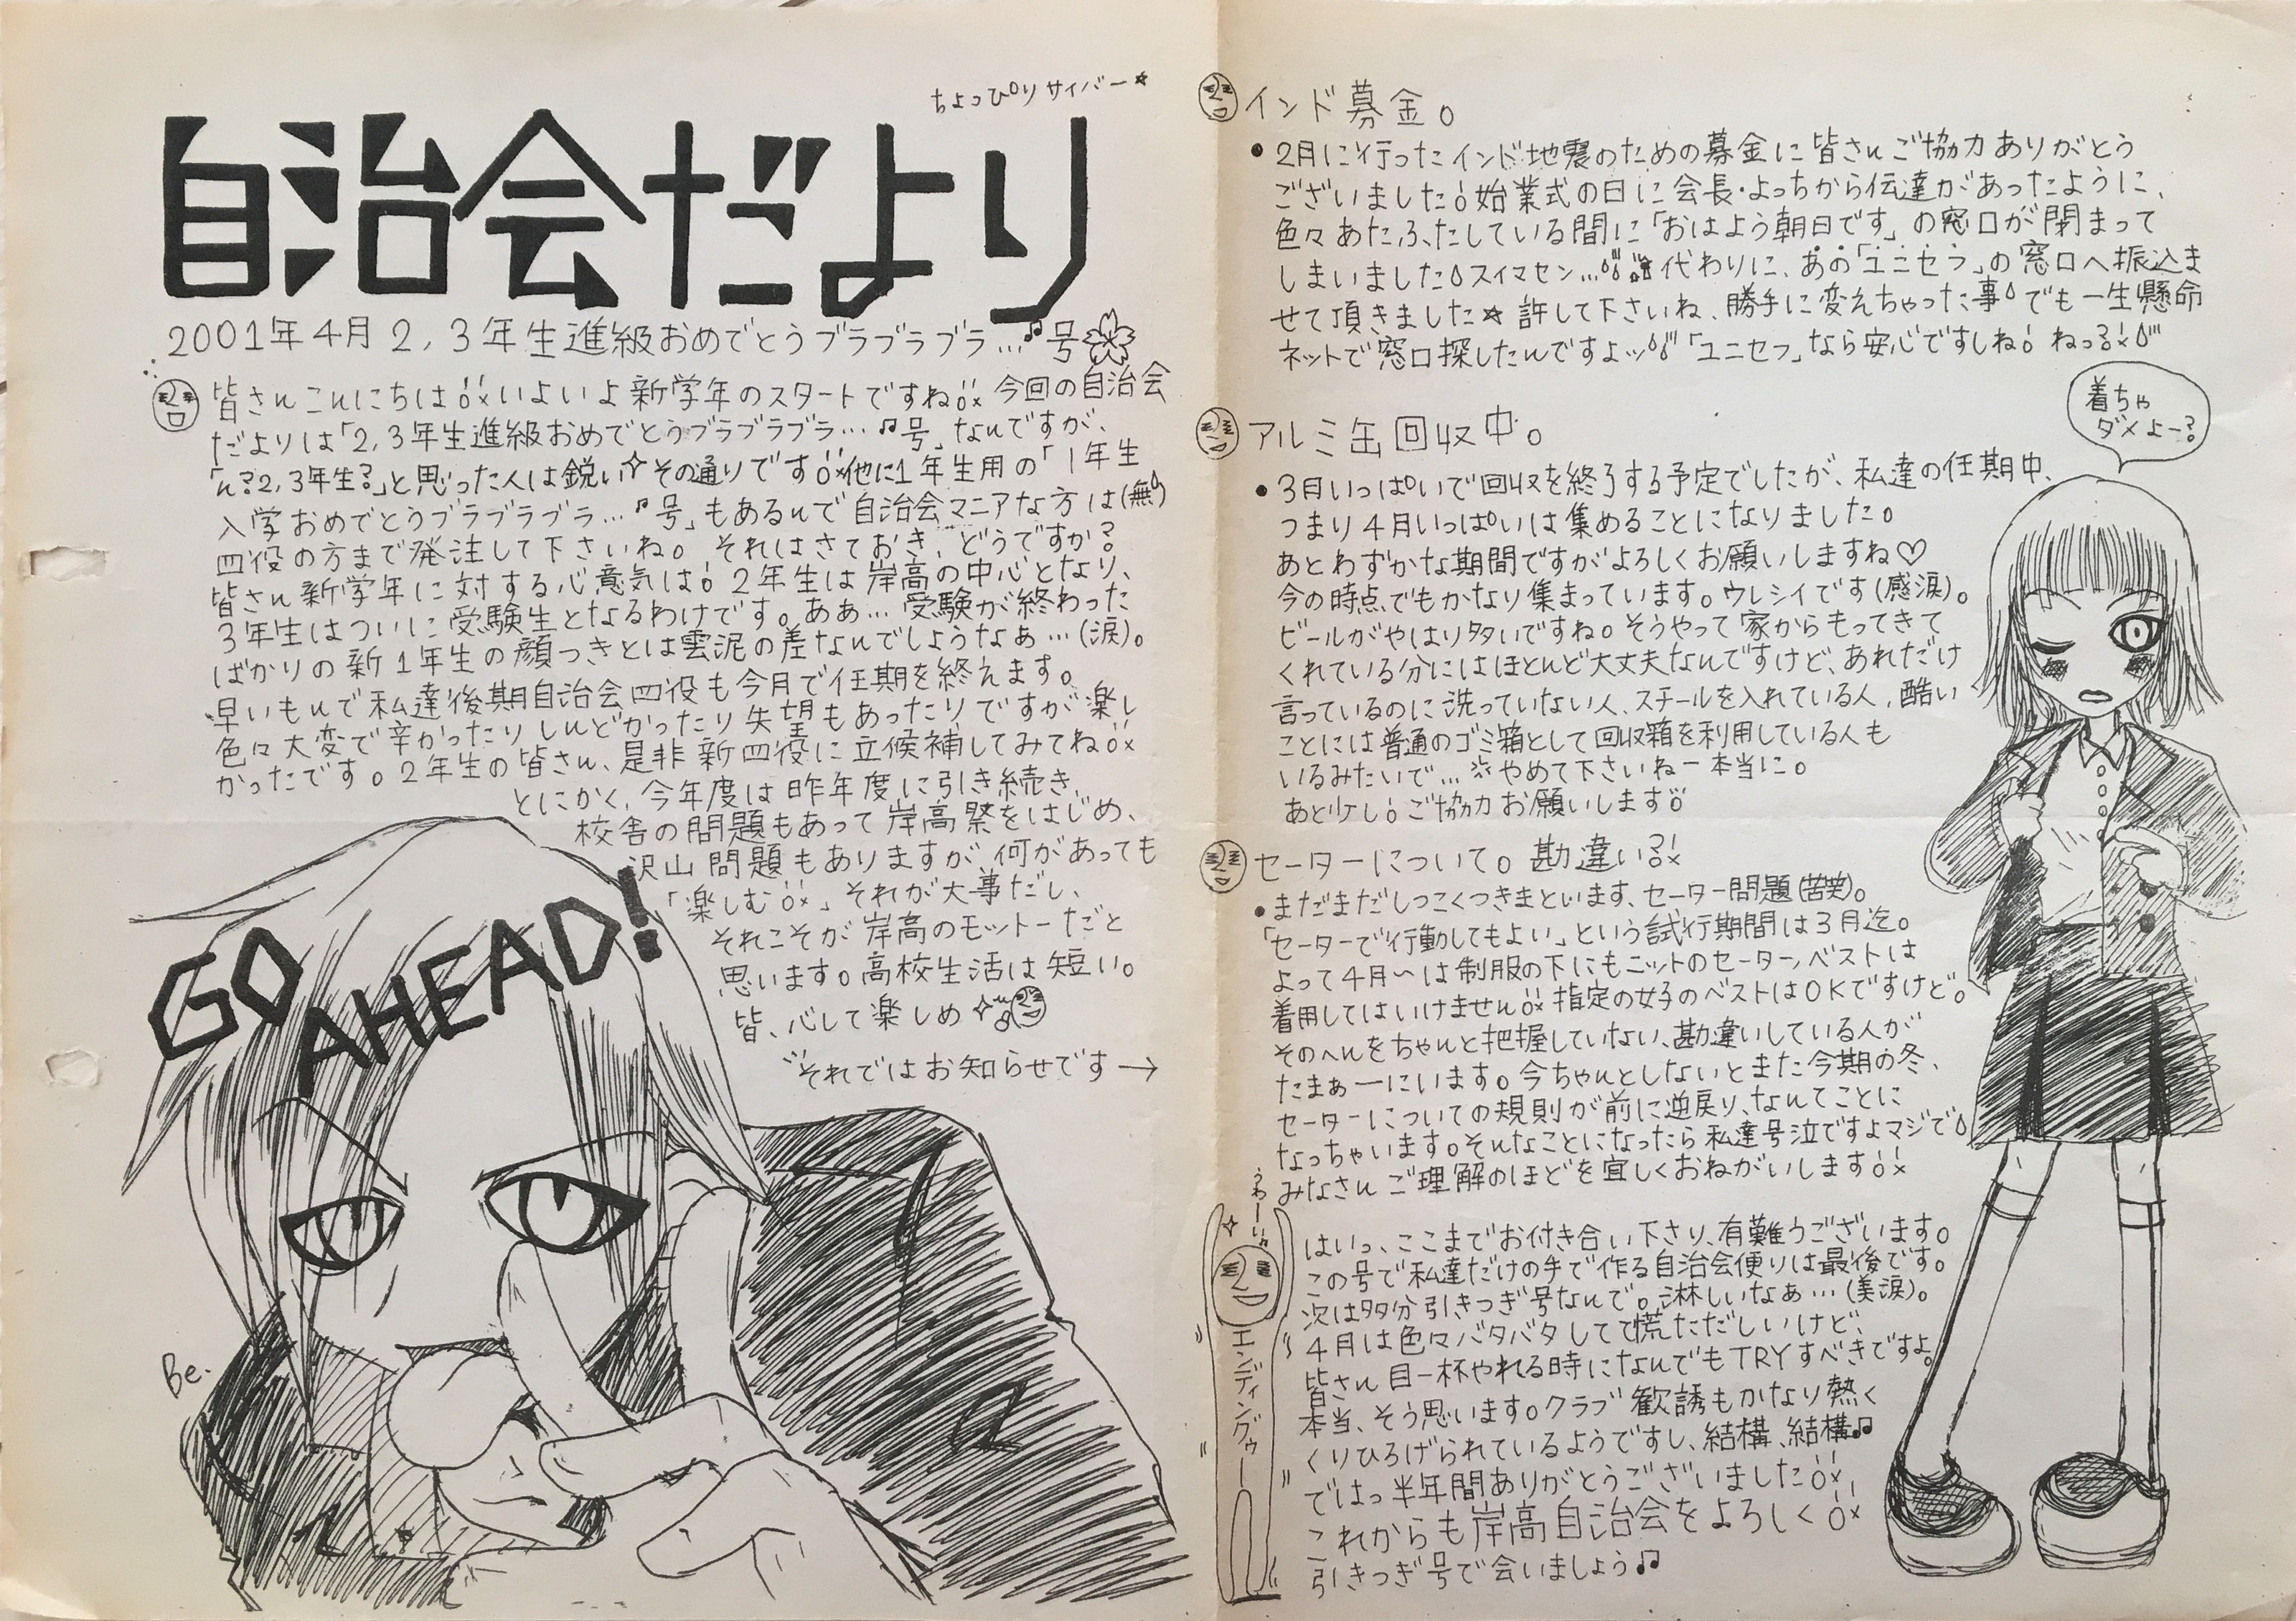 ちょっぴりサイバー☆
自治会だより
2001年4月2,3年生進級おめでとうブラブラブラ…♫号
皆さんこんにちは!!いよいよ新学年のスタートですね!!今回の自治会
だよりは「2,3年生進級おめでとうブラブラブラ…♫号」なんですが、
「ん?2,3年生?」と思った人は鋭い✧その通りです!!他に1年生用の「1年生
入学おめでとうブラブラブラ…♫号」もあるんで自治会マニアな方は(無)
四役の方まで発注して下さいね。それはさておき、どうですか?
皆さん新学年に対する心意気は!2年生は岸高の中心となり、
3年生はついに受験生となるわけです。あぁ…受験が終わった
ばかりの新1年生の顔つきとは雲泥の差なんでしょうなぁ…(涙)。
早いもんで私達後期自治会四役も今月で任期を終えます。
色々大変で辛かったりしんどかったり失望もあったりですが楽し
かったです。2年生の皆さん、是非新四役に立候補してみてね!!
とにかく、今年度は昨年度に引き続き、
校舎の問題もあって岸高祭をはじめ、
沢山問題もありますが、何があっても
「楽しむ!!」それが大事だし、
それこそが岸高のモットーだと
思います。高校生活は短い。
皆、心して楽しめ✧
それではお知らせです→
GO
AHEAD!
Be.
インド募金。
•2月に行ったインド地震のための募金に皆さんご協力ありがとう
ございました!始業式の日に会長・よっちから伝達があったように、
色々あたふたしている間に「おはよう朝日です」の窓口が閉まって
しまいました スイマセン… 代わりに、あの「ユニセフ」の窓口へ振込ま
せて頂きました☆許して下さいね、勝手に変えちゃった事 でも一生懸命
ネットで窓口探したんですよッ!!「ユニセフ」なら安心ですしね! ねっ?!!
アルミ缶回収中。
•3月いっぱいで回収を終了する予定でしたが、私達の任期中、
つまり4月いっぱいは集めることになりました。
あとわずかな期間ですがよろしくお願いしますね♡
今の時点でもかなり集まっています。ウレシイです(感涙)。
ビールがやはり多いですね。そうやって家からもってきて
くれている分にはほとんど大丈夫なんですけど、あれだけ
言っているのに洗っていない人、スチールを入れている人、酷い
ことには普通のゴミ箱として回収箱を利用している人も
いるみたいで…やめて下さいねー本当に。
あと少し!ご協力お願いします!!
着ちゃ
ダメよー?
セーターについて。勘違い?!
•まだまだしつこくつきまといます、セーター問題(苦笑)。
「セーターで行動してもよい」という試行期間は3月迄。
よって4月〜は制服の下にもニットのセーター、ベストは
着用してはいけません!!指定の女子のベストはOKですけど。
そのへんをちゃんと把握していない、勘違いしている人が
たまぁーにいます。今ちゃんとしないとまた今期の冬、
セーターについての規則が前に逆戻り、なんてことに
なっちゃいます。そんなことになったら私達号泣ですよマジで
みなさんご理解のほどを宜しくおねがいします!!
うわーい♫
エンディングゥー
はいっ、ここまでお付き合い下さり、有難うございます。
この号で私達だけの手で作る自治会便りは最後です。
次は多分引きつぎ号なんで。淋しいなぁ…(美涙)。
4月は色々バタバタしてて慌ただしいけど、
皆さん目一杯やれる時になんでもTRYすべきですよ。
本当、そう思います。クラブ歓誘もかなり熱く
くりひろげられているようですし、結構、結構♫
ではっ半年間ありがとうございました!!
これからも岸高自治会をよろしく!!
引きつぎ号で会いましょう♫